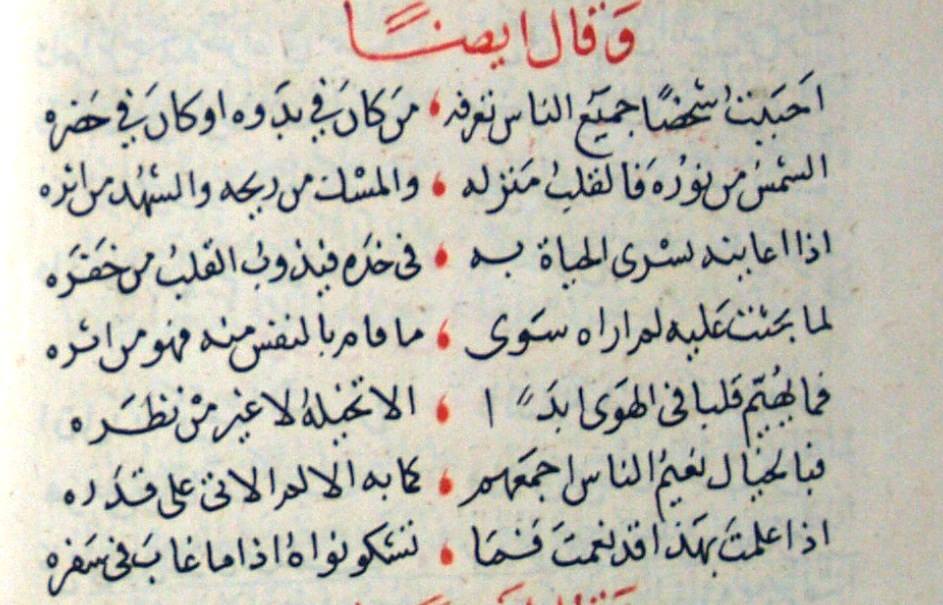 وقال ايضًا
احببت شخصًا جميع الناس تعرفه ، من كان في بدوه او كان في حضره
الشمس من نوره فالقلب منزله ، والمسك من ريحه والشهد من اثره
اذا اعاينه تسرى الحياة به ، فى خده فيذوب القلب من خفره
لما بحثت عليه لم اراه سوى ، ما قام بالنفس منه فهو من اثره
فما يهيم قلبا فى الهوى ابدًا ، الا تخيله لا غير من نظره
فبالخيال نعيم الناس اجمعهم ، كما به الالم الاتى على قدره
اذا علمت بهذا قد نعمت فما ، تشكو نواه اذا ما غاب فى سفره